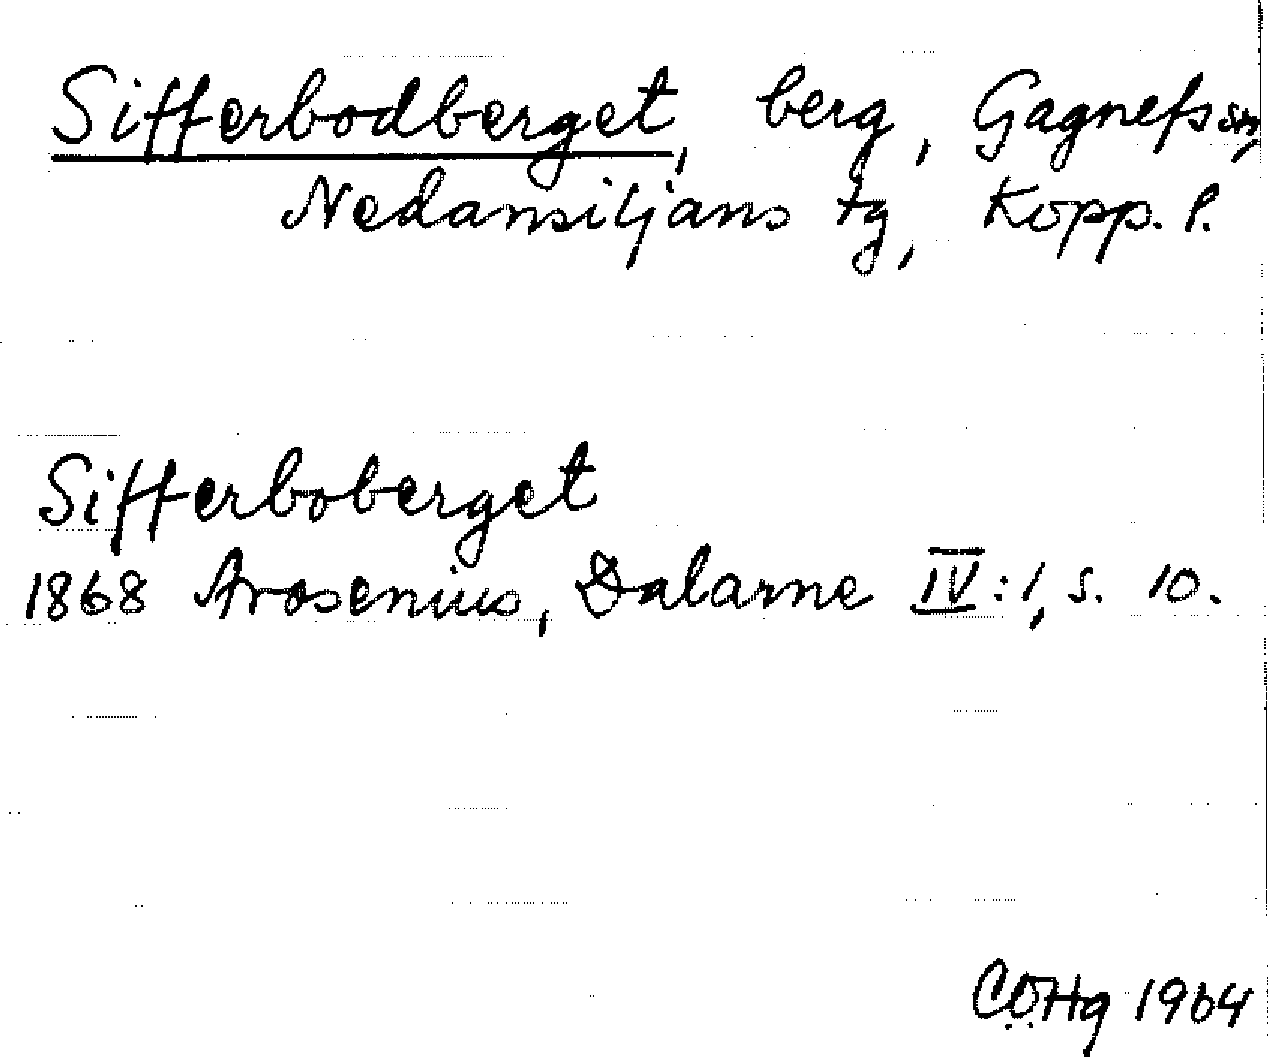 Sifferbodberget, berg, Gagnefs sn,
Nedansiljans tg, Kopp. l.
Sifferboberget
1868 Arosenius, Dalarne IV:1, s. 10.
CÖHg 1964